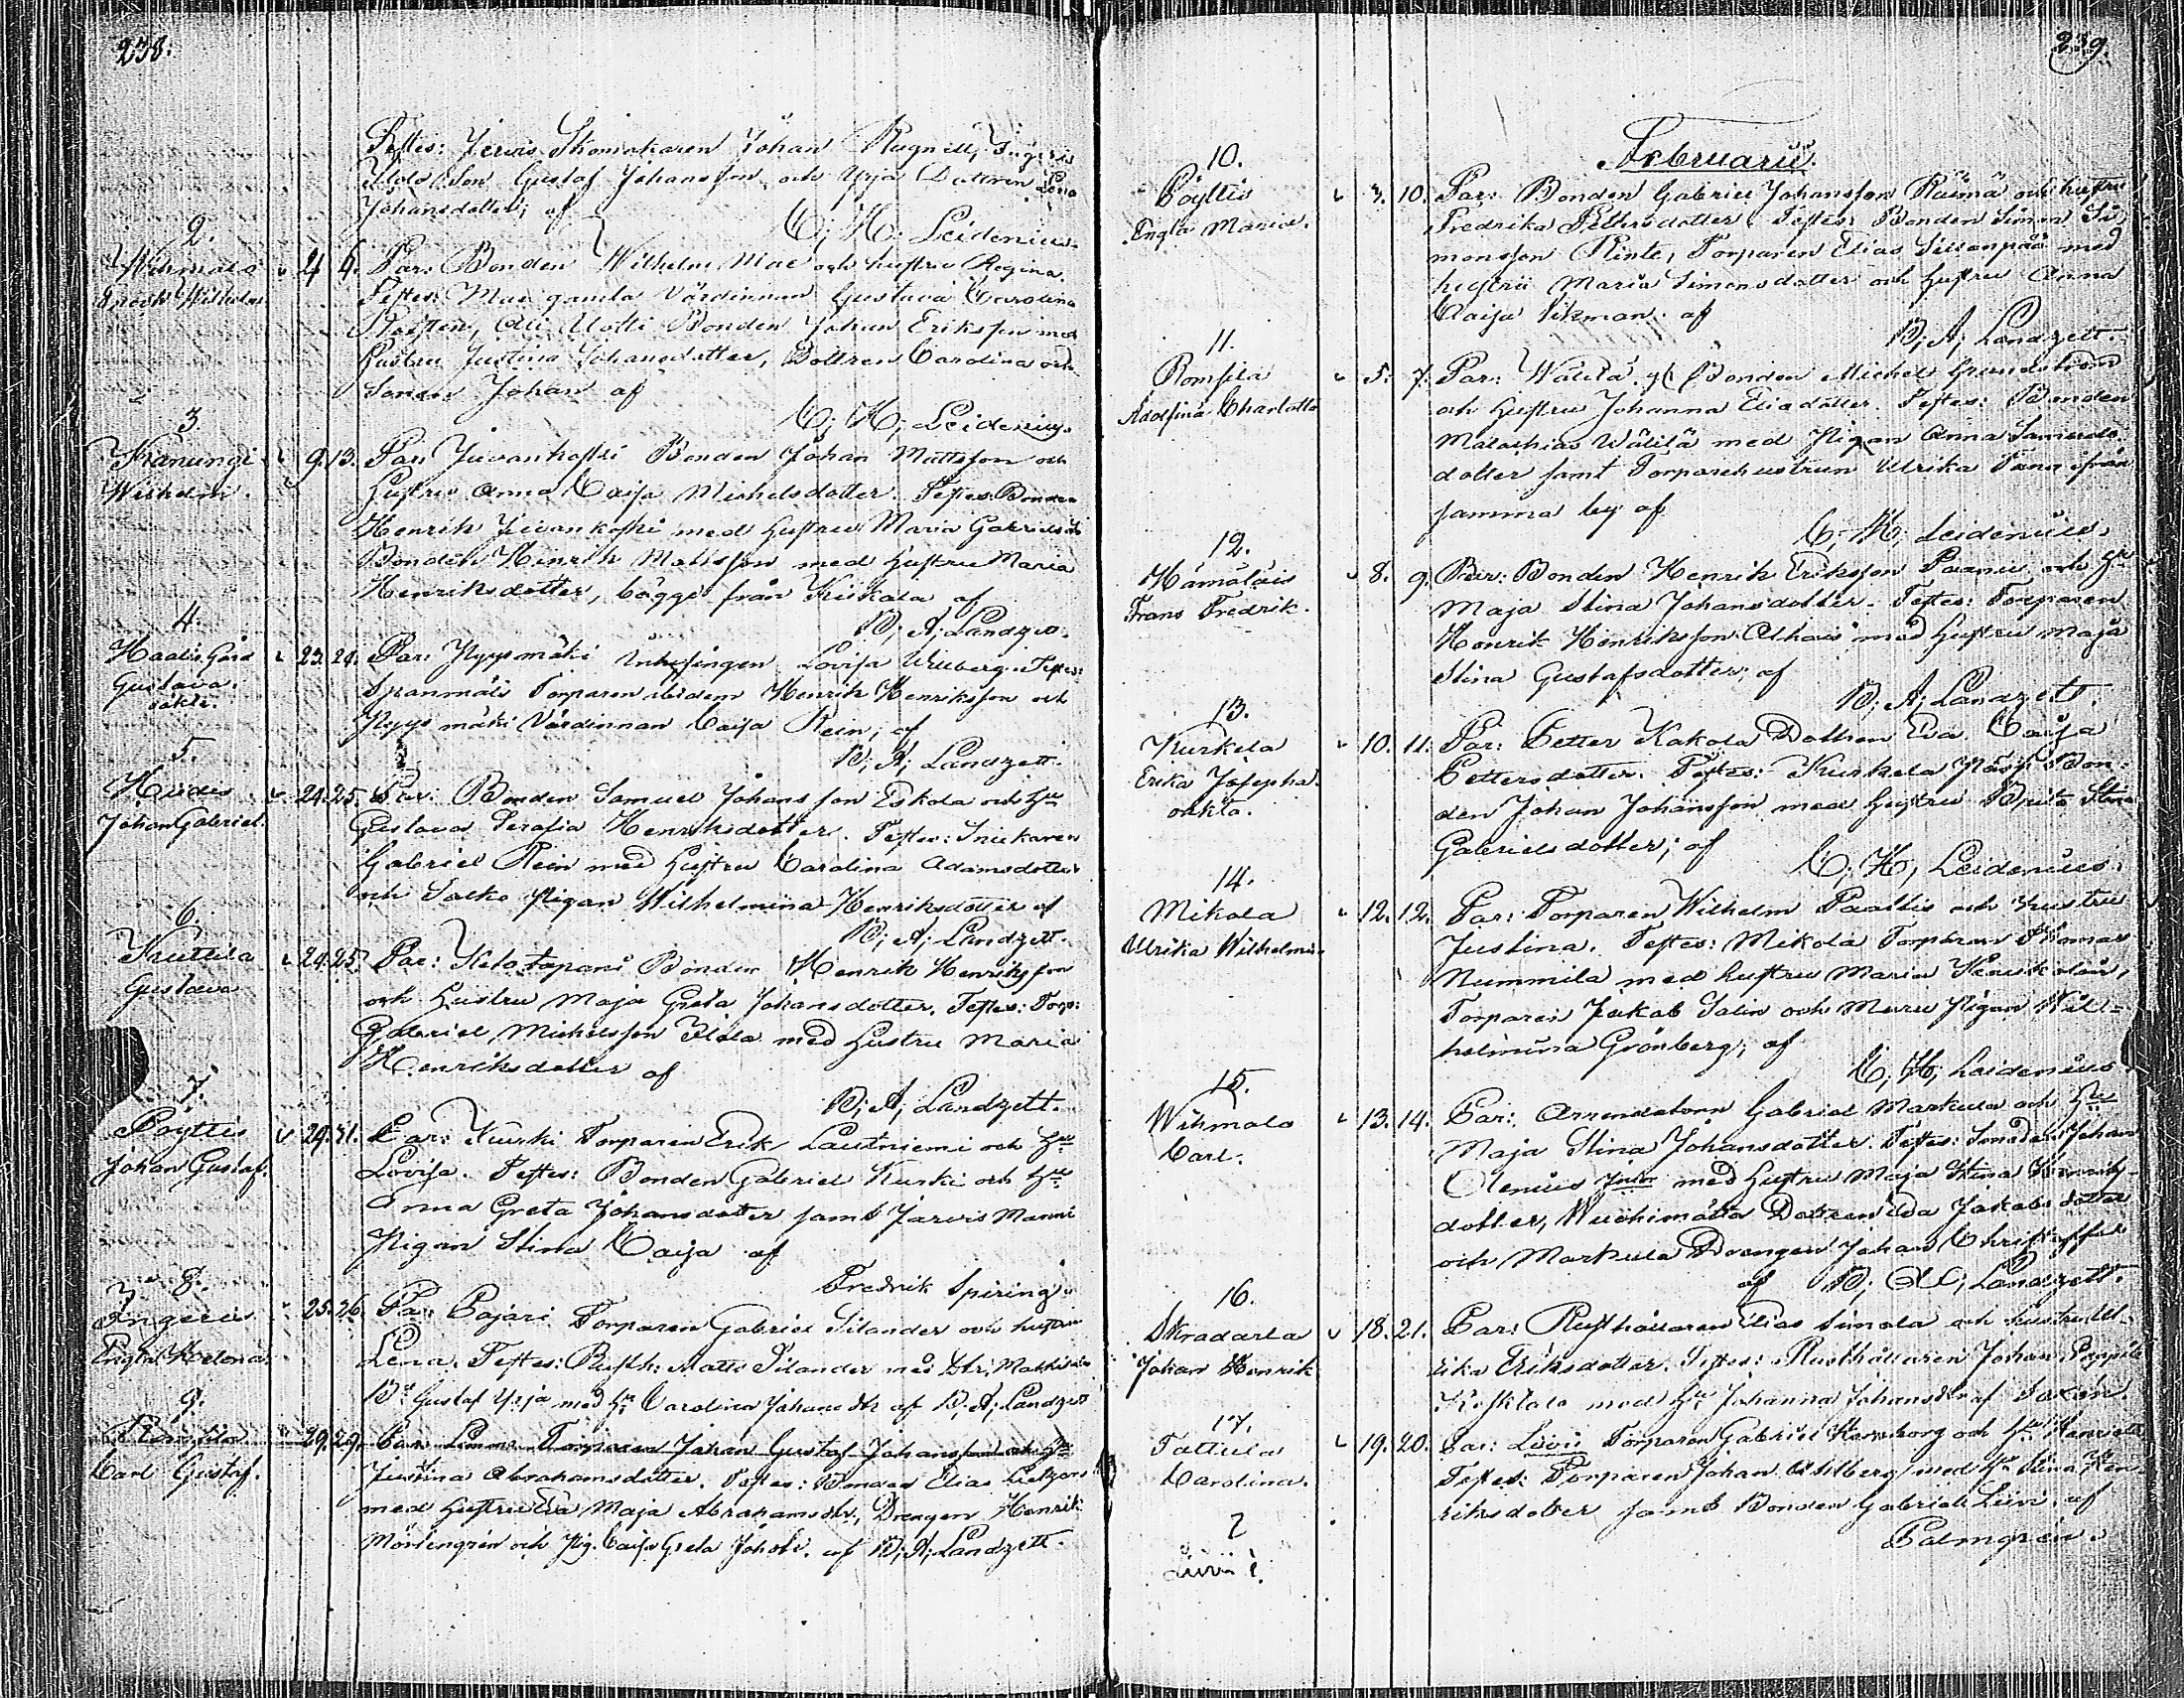 238.
Testes: Jervis Skomakaren Johan Rugnell, Ingeris
Son Gustaf Johansson och Yrjä Dottren Lena
Johansdotter; af
C; H; Leidenius.
2.
Wihmalo
Enock Wilhelm
4 6. Par: Bonden Wilhelm Mae och hustru Regina.
Testes: Mae gamla Värdinnan Gustava Carolina
Ali Uotti Bonden Johan Eriksson med
Hustru Justina Johansdotter, Dottren Carolina och
Sonen Johan af
C; H; Leidenius.
3.
Kanungi
Wilhelm.
9. 13. Par: Juvankoski Bonden Johan Mattsson och
Hustru Anna Caisa Michelsdotter. Testes: Bonden
Henrik Juvankoski med Hustru Maria Gabrielsdr
Bonden Henrik Matsson med Hustru Maria
Henriksdotter, bägge från Kiikala af
B; A; Landzett.
4.
Haali Gård
Gustava.
oäkta.
23. 24. Par: Nyysmäki Inhysingen Lovisa Willberg. Testes:
Torparen ibidem Henrik Henriksson och
Nyysmäki Värdinnan Caisa Rein; af
B; A; Landzett.
5.
Heidis
Johan Gabriel.
24. 25. Par: Bonden Samuel Johansson Eskola och Hu
Gustava Serafia Henriksdotter. Testes: Snickaren
Gabriel Rein med Hustru Carolina Adamsdotter
och Salko Pigan Wilhelmina Henriksdotter af
B; A; Landzett.
6.
Kuttila
Gustava
24. 25. Par: Ylistapani Bonden Henrik Henriksson
och Hustru Maja Greta Johansdotter. Testes: Torp:
Gabriel Michelsson Ilola med Hustru Maria
Henriksdotter af
B; A; Landzett.
7.
Pöyttis
Johan Gustaf.
29. 31. Par: Kurki Torparen Erik Lautniemi och Hu
Lovisa. Testes: Bonden Gabriel Kurki och Hu
Anna Greta Johansdotter samt Jarvis Manni
Pigan Stina Caisa af
Fredrik Spiring.
8.
Ingeris
Engla Helena.
25. 26. Par: Pajari Torparen Gabriel Silander och hustru
Lena. Testes: Rusth: Matts Silander med
Bn Gustaf Yrjä med Hu Carolina Johansdtr af B; A; Landzett
9.
Carl Gustaf.
29. 29. Par: Torparen Johan Gustaf Johansson och Hu
Justina Abrahamsdotter. Testes: Bonden Elias
med Hustru Eva Maja Abrahamsdtr, Drengen Henrik
Mörtengren och Pig. Caisa Greta Johsdr. af B; A; Landzett.
239.
Februarii.
10.
Pöyttis
Engla Maria.
3. 10. Par: Bonden Gabriel Johansson Räimä och hustru
Fredrika Pettersdotter. Testes: Bonden Simon Si-
monsson Rinte, Torparen Elias Sillanpää med
hustru Maria Simonsdotter och Hustru Anna
Caisa Vikman. af
B; A; Landzett.
11.
Romsila
Adolfina Charlotta
5. 7. Par: Wälilä Bonden Michel Grundström
och Hustru Johanna Eliadotter. Testes: Bonden
Malachias Wälilä med Pigan Anna Samuels-
dotter samt Torparehustrun Ulrika ifrån
samma by af
C; H; Leidenius.
12.
Hämäläis
Frans Fredrik.
8. 9. Par: Bonden Henrik Eriksson Paanu och Hu
Maja Stina Johansdotter. Testes: Torparen
Henrik Henriksson Alhais med Hustru Maja
Stina Gustafsdotter; af
B; A; Landzett.
13.
Kurkela
Erika Josepha.
oäkta.
10. 11. Par: Petter Kakola Dottren Eva Caisa
Pettersdotter. Testes: Kurkela Bon-
den Johan Johansson med Hustru Brita Stina
Gabrielsdotter; af
C; H; Leidenius.
14.
Mikola
Ulrika Wilhelmina
12. 12. Par: Torparen Wilhelm Paaltis och Hustru
Justina. Testes: Mikola Torparen Thomas
Nummila med hustru Maria
Torparen Jakob Salin och Muru Pigan Wil-
helmina Grönberg; af
C; H; Leidenius
15.
Wihmalo
Carl.
13. 14. Par: Arrendatorn Gabriel Markula och Hu
Maja Stina Johansdotter. Testes: Johan
Olenius Junr med Hustru Maja Stina Henriks-
dotter, Dottren Eva Jakobsdotter
och Markula Drengen Johan Christoffer
af B; A; Landzett.
16.
Skradarla
Johan Henrik
18. 21. Par: Rusthållaren Elias Simola och hustru Ul-
rika Eriksdotter. Testes: Rusthållaren Johan
med Hu Johanna Johansdtr af Saxén.
17.
Tattula
Carolina.
19. 20. Par: Liivi Torparen Gabriel Kornborg och Hu
Testes: Torparen Johan Ahlberg med Hu Stina Hen-
riksdotter samt Bonden Gabriel Liivi. af
Palmgrén.
?
Liivi